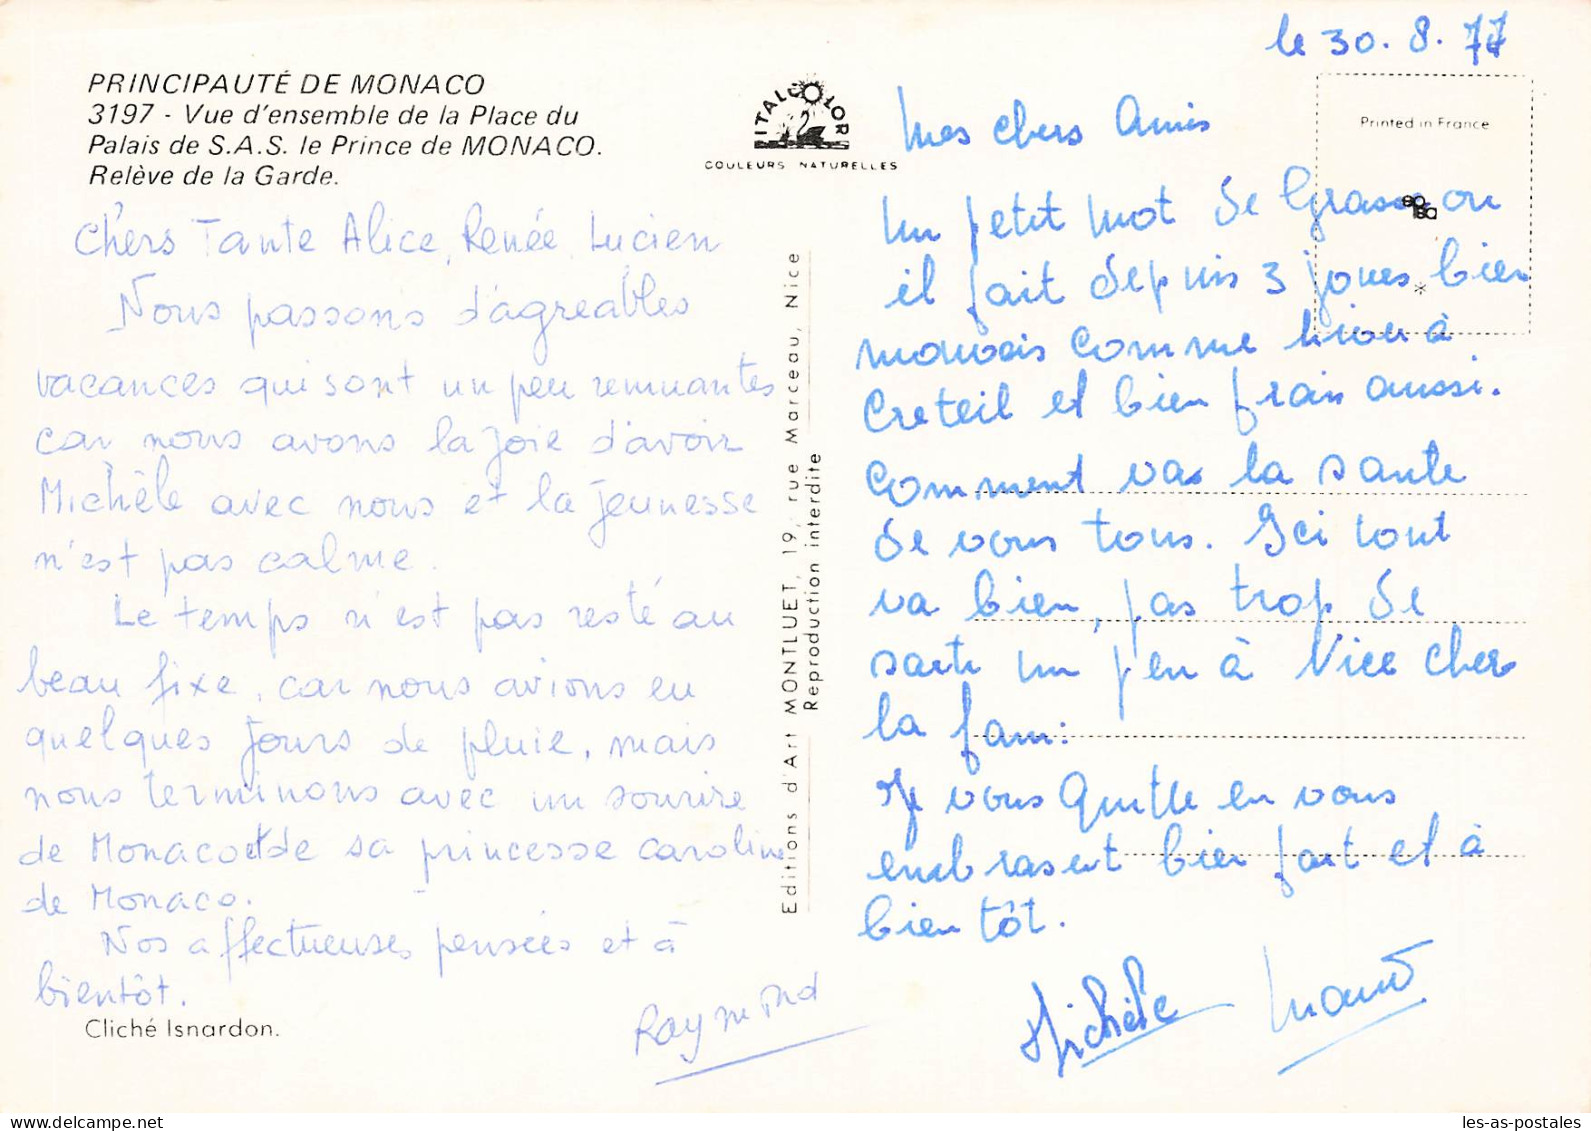 PRINCIPAUTÉ DE MONACO
3197 - Vue d'ensemble de la Place du
Palais de S.A.S. le Prince de MONACO.
Relève de la Garde.
Chers Tante Alice, Renée, Lucien
Nous passons d'agreables
vacances qui sont un peu remuantes
car nous avons la joie d'avoir
Michèle avec nous et la jeunesse
n'est pas calme.
Le temps n'est pas resté au
beau fixe, car nous avions eu
quelques jours de pluie, mais
nous terminons avec un sourire
de Monaco et de sa princesse caroline
de Monaco.
Nos affectueuses pensées et à
bientôt.
Raymond
Cliché Isnardon.
ITALCOLOR
COULEURS NATURELLES
Editions d'Art MONTLUET, 19, rue Marceau, Nice
Reproduction interdite
le 30.8.77
Printed in France
Mes chers Amis
un petit mot de Grasse ou
il fait depuis 3 joues bien
mauvais comme hiou à
Creteil et bien frais aussi.
Comment vas la sante
de vous tous. Ici tout
va bien, pas trop de
sarti un peu à Nice cher
la fam:
Je vous quitte en vous
embrasent bien fort et à
bientôt.
Michèle